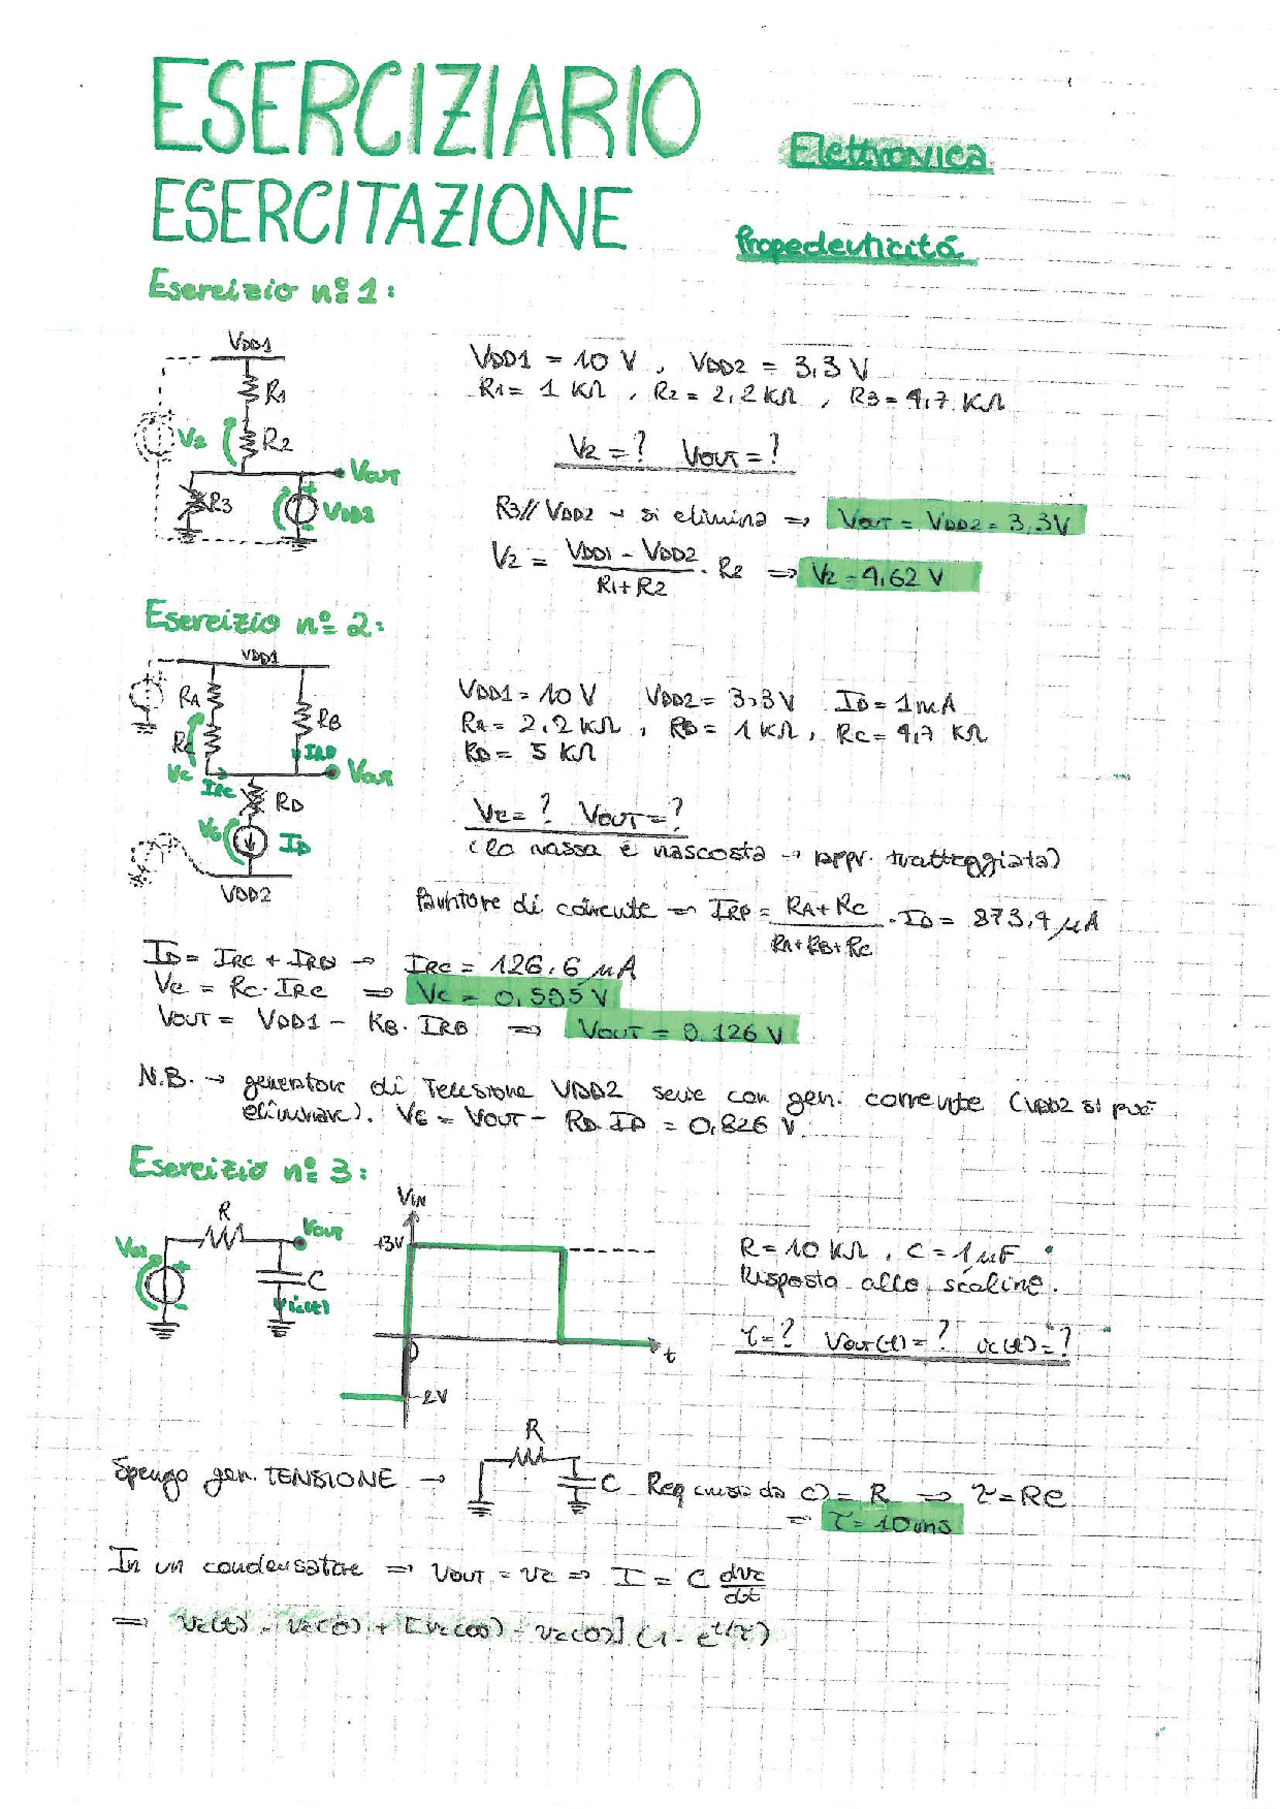 ESERCIZIARIO
Elettronica
ESERCITAZIONE
Propedeuticità
Esercizio nº 1:
VDD1
R1
V2
R2
VOUT
R3
VDD2
VDD1 = 10 V , VDD2 = 3,3 V
R1 = 1 KΩ , R2 = 2,2 KΩ , R3 = 4,7 KΩ
V2 = ? VOUT = ?
R3 // VDD2 → si elimina ⇒ VOUT = VDD2 = 3,3V
V2 = (VDD1 - VDD2)/(R1+R2) · R2 ⇒ V2 = 4,62 V
Esercizio nº 2:
VDD1
RA
RB
RC
IRB
VC
IRC
VOUT
RD
VG
ID
VDD2
VDD1 = 10 V VDD2 = 3,3V ID = 1mA
RA = 2,2 KΩ , RB = 1 KΩ, RC = 4,7 KΩ
RD = 5 KΩ
VC = ? VOUT = ?
(la massa è nascosta → rappr. tratteggiata)
di corrente ⇒ IRB = (RA + RC)/(RA+RB+RC) · ID = 873,4 μA
ID = IRC + IRB → IRC = 126,6 μA
VC = RC · IRC ⇒ VC = 0,595 V
VOUT = VDD1 - RB · IRB ⇒ VOUT = 9,126 V
N.B. → generatore di Tensione VDD2 serie con gen. corrente (VDD2 si può
eliminare). VG = VOUT - RD·ID = 0,826 V
Esercizio nº 3:
VIN
R
VOUT
C
ic(t)
VIN
+3V
0
t
-2V
R = 10 KΩ , C = 1 μF
Risposta allo scalino.
τ = ? VOUT(t) = ? ic(t) = ?
Spengo gen. TENSIONE →
R
C
Req da C) = R ⇒ τ = RC
⇒ τ = 10ms
In un condensatore ⇒ VOUT = vc ⇒ I = C dvc/dt
⇒ vc(t) = vc(0) + [vc(∞) - vc(0)] (1 - e^t/τ)